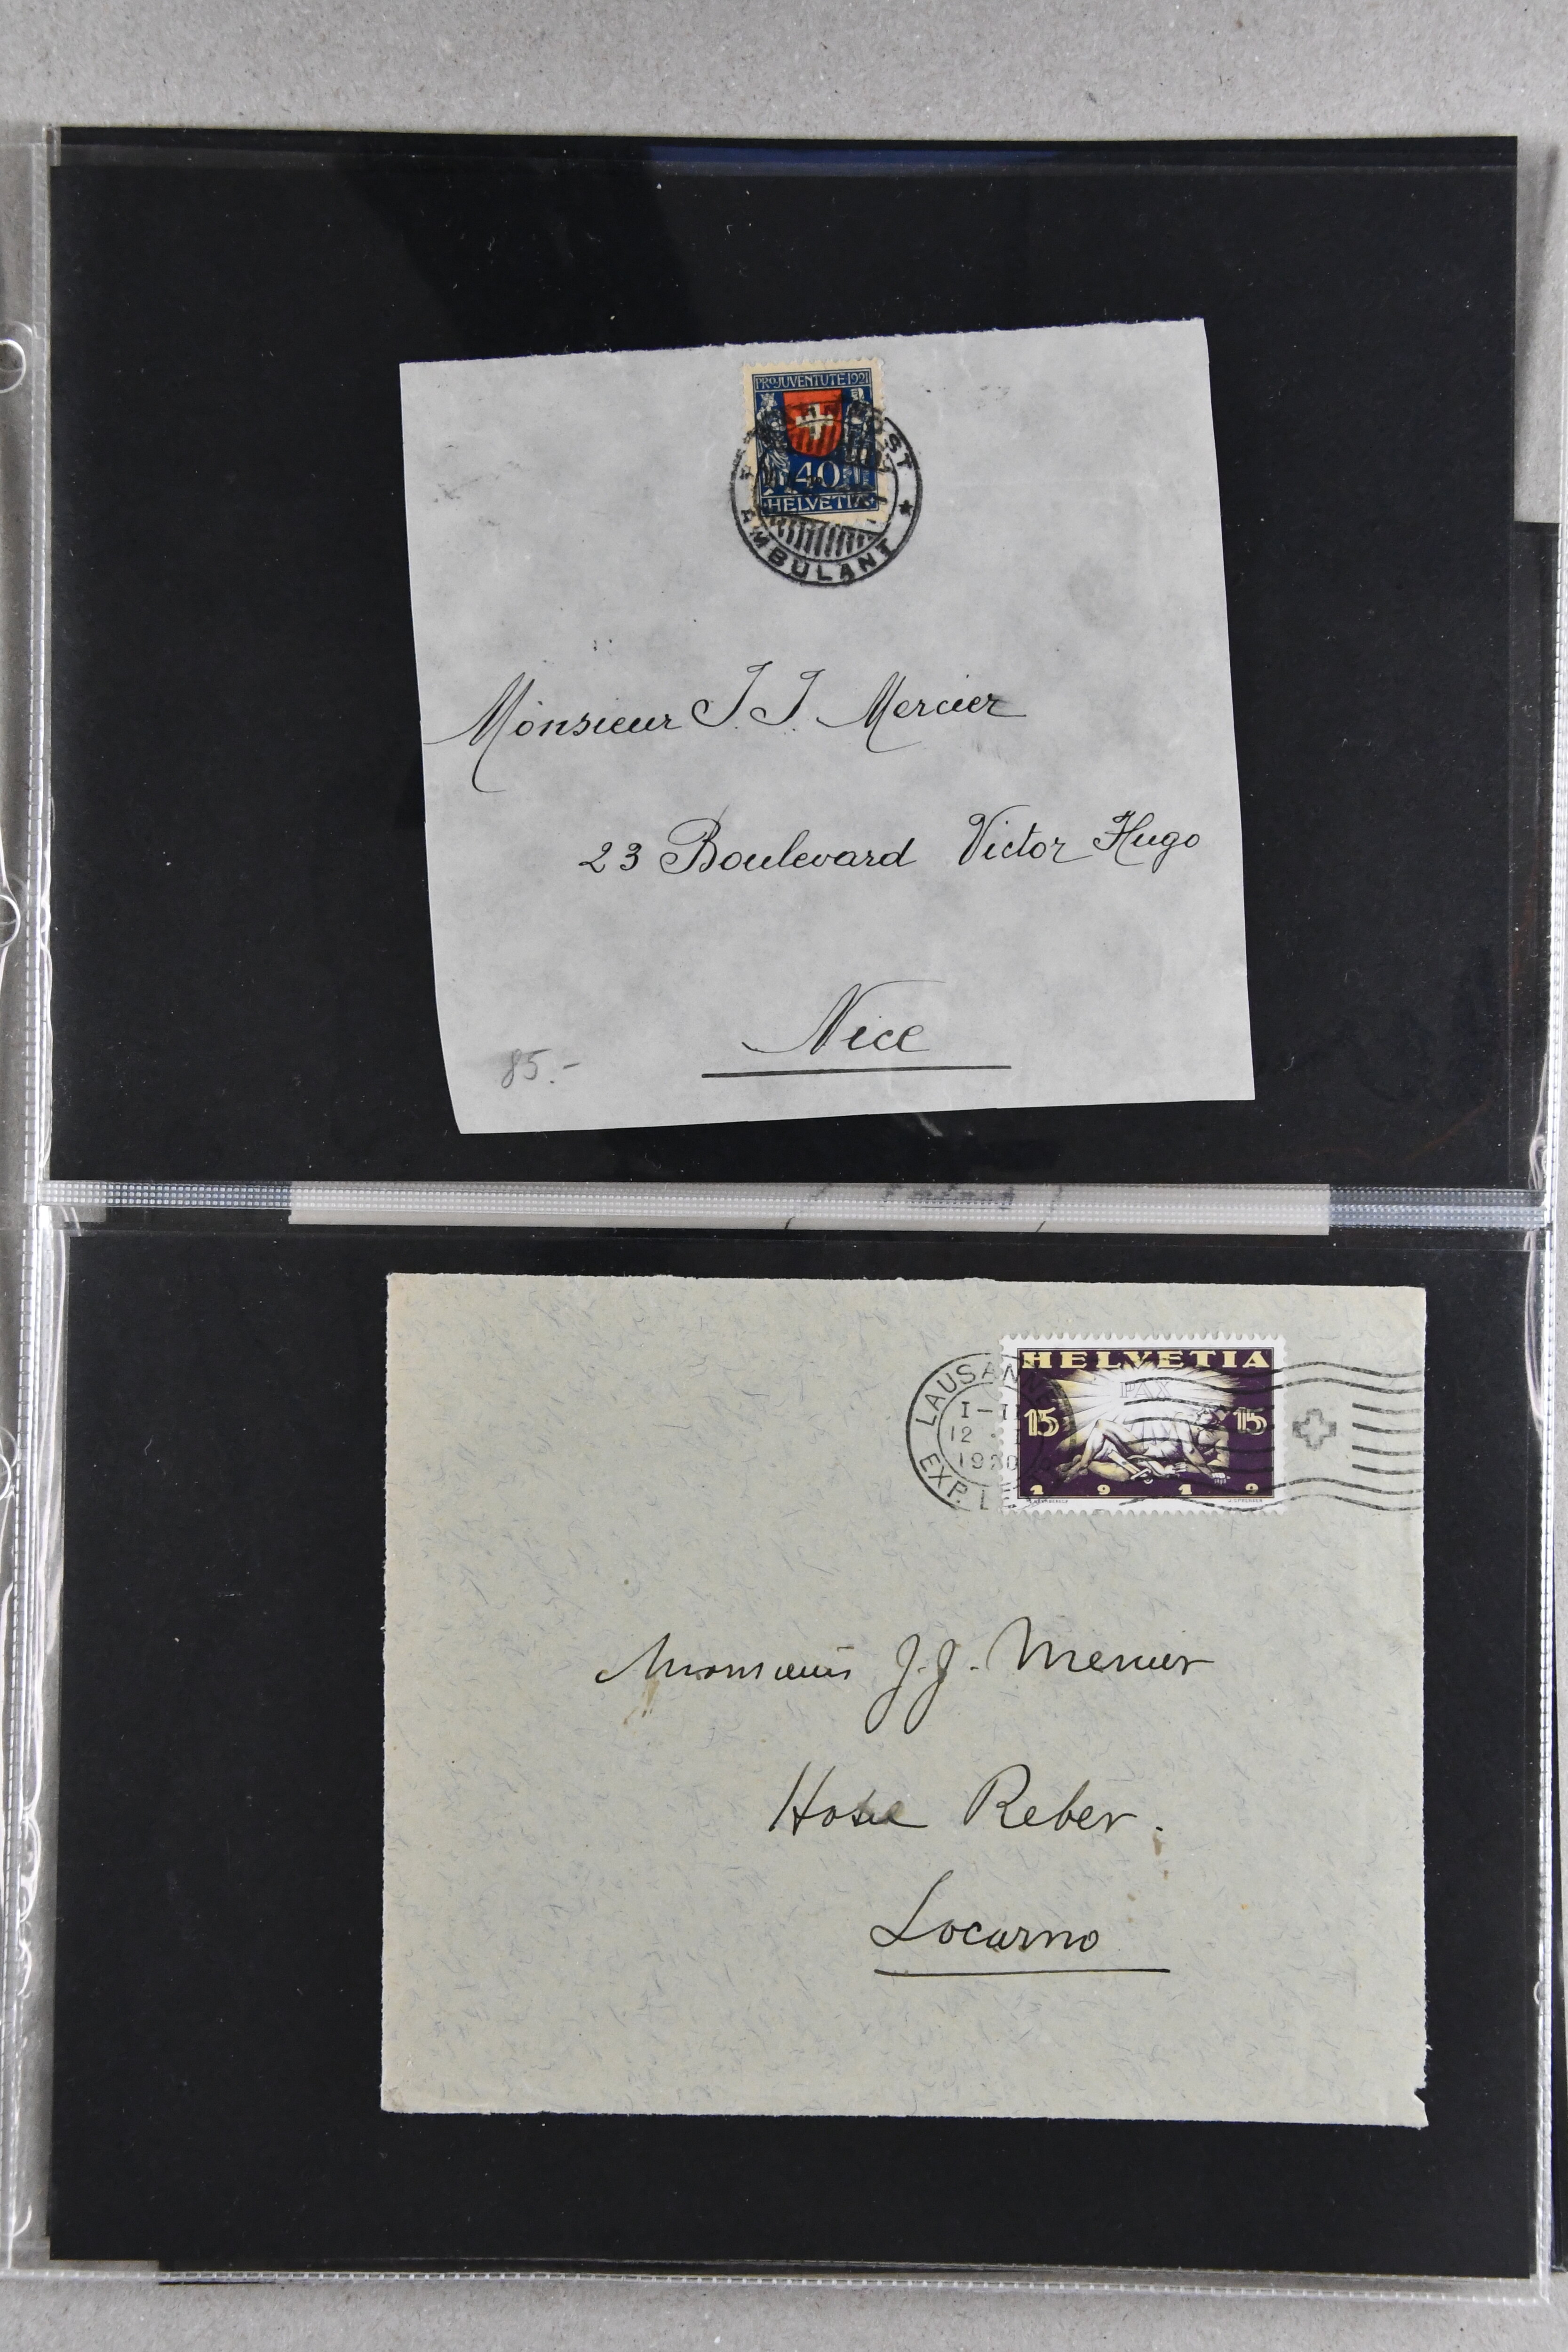 PRO JUVENTUTE 1921
40
HELVETIA
POST
AMBULANT
Monsieur J. J. Mercier
23 Boulevard Victor Hugo
Nice
85.-
HELVETIA
PAX
15 15
1 9 1 9
LAUSANNE
12
1920
EXP. LE
Monsieur J. J. Mercier
Hotel Reber.
Locarno